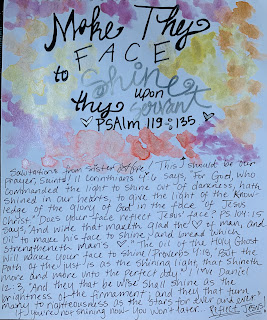 Make Thy
FACE
to Shine
upon
thy servant
♡ PSAlm 119:135 ♡
Salutations from sister! This should be our
prayer, Saints! II Corinthians 4:6 says, For God, who
commanded the light to shine out of darkness, hath
shined in our hearts, to give the light of the know-
ledge of the glory of God in the face of Jesus
Christ." Does your face reflect Jesus' face? PS 104:15
says, "And wine that maketh glad the ♡ of man, and
oil to make his face to shine, and bread which
strengtheneth man's ♡" The oil of the Holy Ghost
will make your face to shine! Proverbs 4:18, But the
Path of the just is as the shining light, that Shineth
more and more unto the perfect day." I love Daniel
12:3, "And they that be wise Shall shine as the
brightness of the firmament; and they that turn
many to righteousness as the stars for ever and ever".
If you're not shining now - You won't later. REFLECT JESUS!